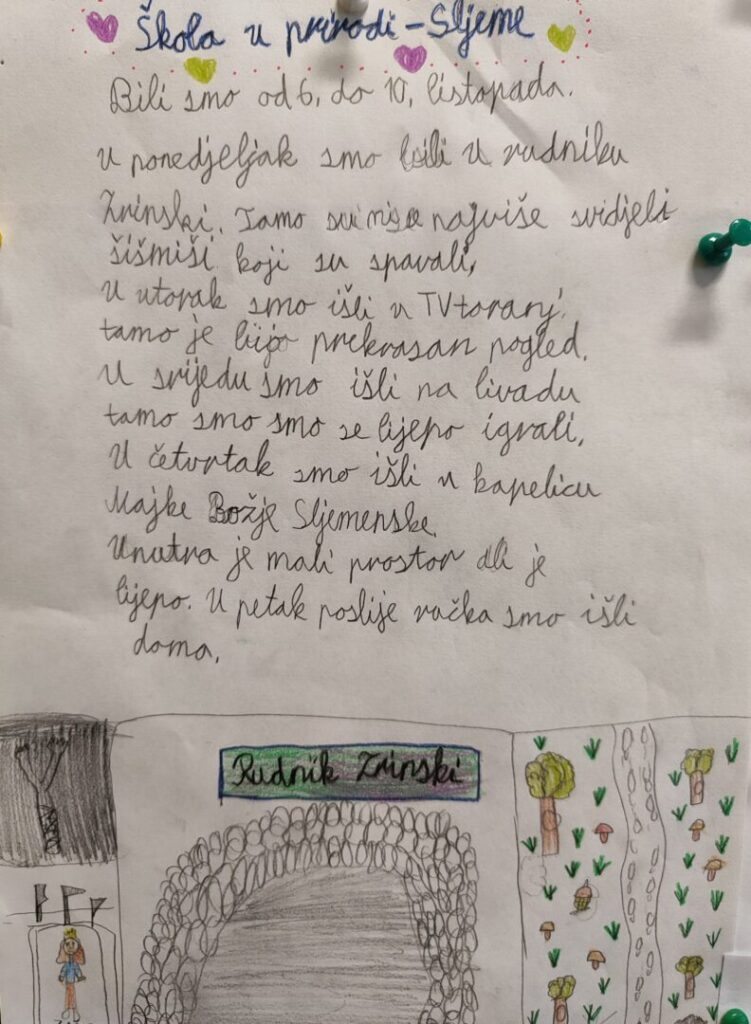 Škola u prirodi - Sljeme
Bili smo od 6. do 10. listopada.
U ponedjeljak smo bili u rudniku
Zrinski. Tamo su mi se najviše svidjeli
šišmiši koji su spavali.
U utorak smo išli u TV toranj.
tamo je lijepo prekrasan pogled.
U srijedu smo išli na livadu
tamo smo smo se lijepo igrali.
U četvrtak smo išli u kapelicu
Majke Božje Sljemenske.
Unutra je mali prostor ali je
lijepo. U petak poslije ručka smo išli
doma.
Rudnik Zrinski